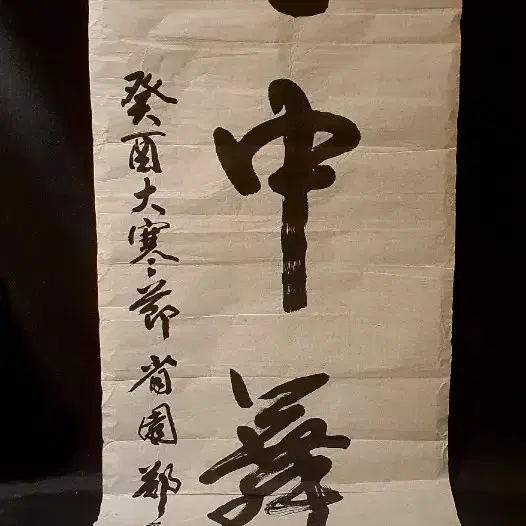 中舞
癸酉大寒節 省園 鄭